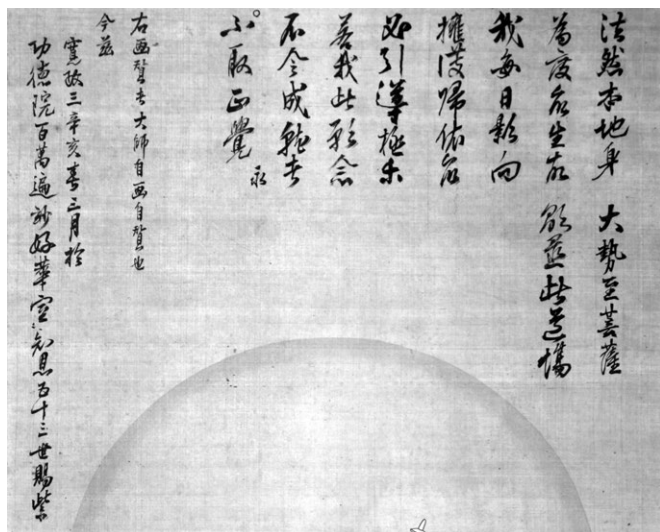 法然本地身 大勢至菩薩
為度衆生故 顕置此道場
我毎日影向
擁護帰依衆
必引導極楽
若我此願念
不令成就者
永
不取正覺
右画賛者大師自画自賛也
今茲
寛政三辛亥春三月於
功徳院百萬遍 好華 知恩五十三世賜紫